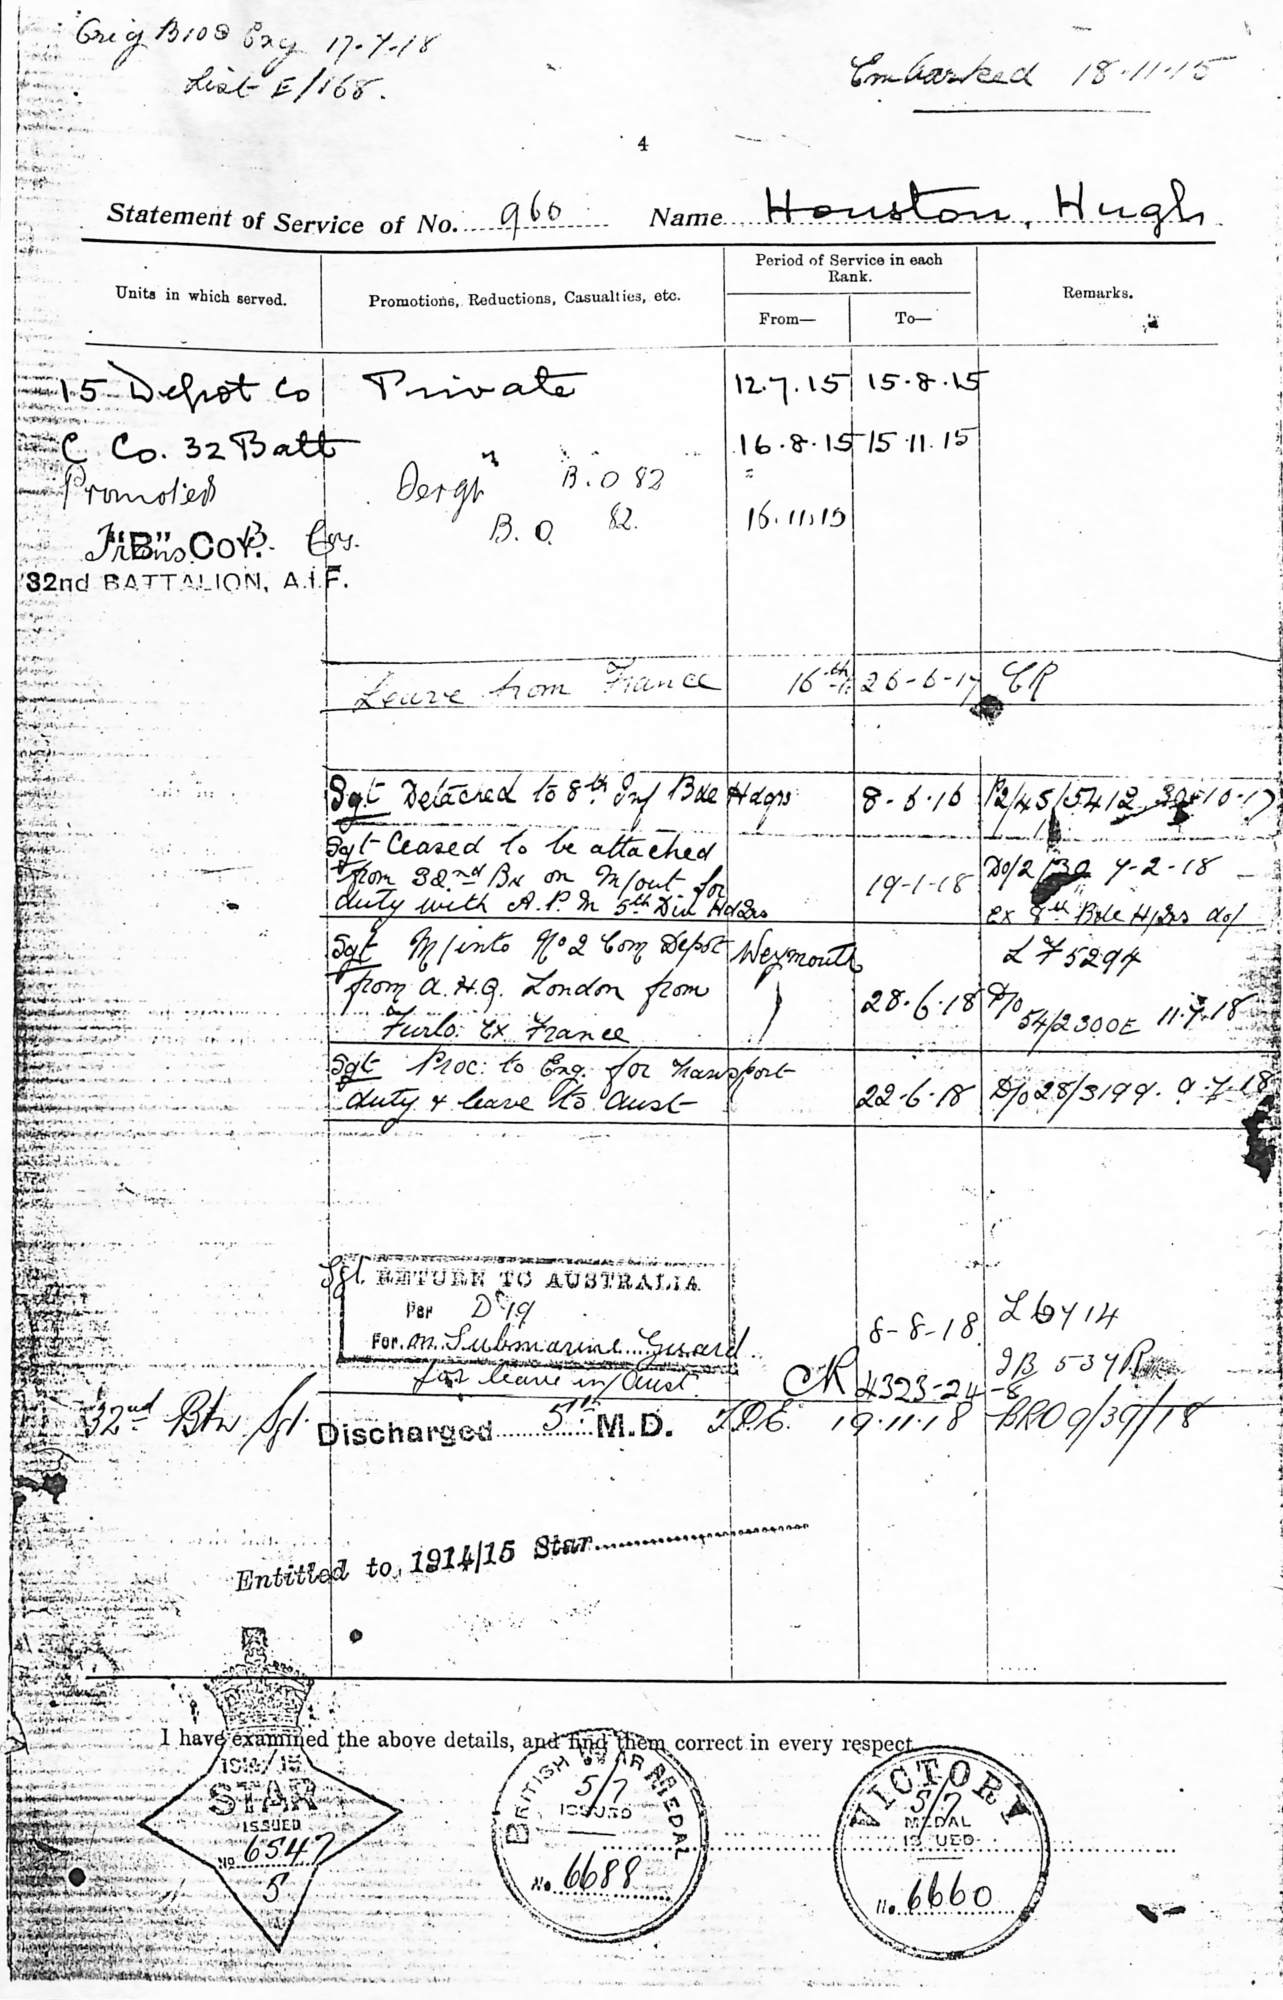 Orig B103 Exg 17-7-18
List E/168.
Embarked 18.11.15
4
Statement of Service of No. 960 Name Houston, Hugh
Units in which served.
Promotions, Reductions, Casualties, etc.
Period of Service in each Rank.
From—
To—
Remarks.
15 Depot Co Private 12.7.15 15.8.15
C Co. 32 Batt " 16.8.15 15.11.15
Promoted Sergt B.O 82 "
Trans. B. Coy. B.O. 82. 16.11.15
"B" COY.
32nd BATTALION, A.I.F.
Leave from France 16th 26-6-17 CR
Sgt Detached to 8th Inf Bde Hdqrs 8-6-16 P2/45/5412 30-10-17
Sgt Ceased to be attached
from 32nd Bn on M/out for 19-1-18 Do/2/30 7-2-18
duty with A.P.M 5th Div Hdqrs Ex 8th Bde H/Qrs
Sgt M/into No 2 Com Depot Weymouth L F5294
from A.H.Q. London from 28-6-18 D/o 54/2300E 11.7.18
Furlo. Ex France
Sgt Proc: to Eng. for Transport
duty & leave to Aust 22-6-18 D/o 28/3199. 9.7.18
Sgt. RETURN TO AUSTRALIA
Per D 19 8-8-18 L6714
For. Submarine Guard. JB 537R
for leave in Aust. 4323-24-8
32nd Btn Sgt. Discharged 5th M.D. T.P.E. 19.11.18 BRO 9/39/18
Entitled to 1914/15 Star
I have examined the above details, and find them correct in every respect.
1914/15
STAR
ISSUED
No 6547
5
BRITISH WAR MEDAL
5/7
ISSUED
No. 6688
VICTORY
5/7
MEDAL
ISSUED
No. 6660